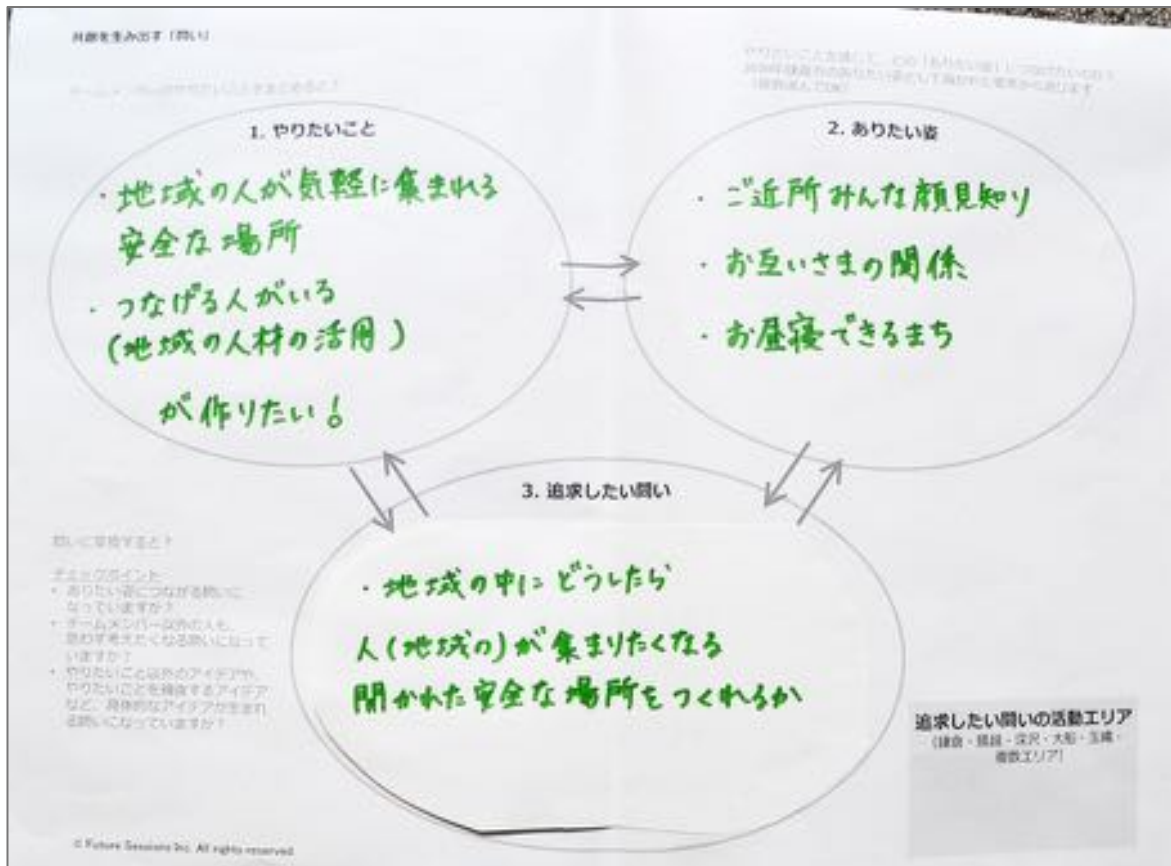 共創を生み出す「問い」
チームメンバーのやりたいことをまとめると？
1. やりたいこと
・地域の人が気軽に集まれる
安全な場所
・つなげる人がいる
(地域の人材の活用)
が作りたい!
2. ありたい姿
・ご近所みんな顔見知り
・お互いさまの関係
・お昼寝できるまち
3. 追求したい問い
・地域の中にどうしたら
人(地域の)が集まりたくなる
開かれた安全な場所をつくれるか
問いに変換すると？
チェックポイント
・ありたい姿につながる問いに
なっていますか？
・チームメンバー以外の人も、
思わず考えたくなる問いになって
いますか？
・やりたいこと以外のアイデアや、
やりたいことを補強するアイデア
など、具体的なアイデアが生まれ
る問いになっていますか？
追求したい問いの活動エリア
(鎌倉・腰越・深沢・大船・玉縄・
複数エリア)
© Future Sessions Inc. All rights reserved